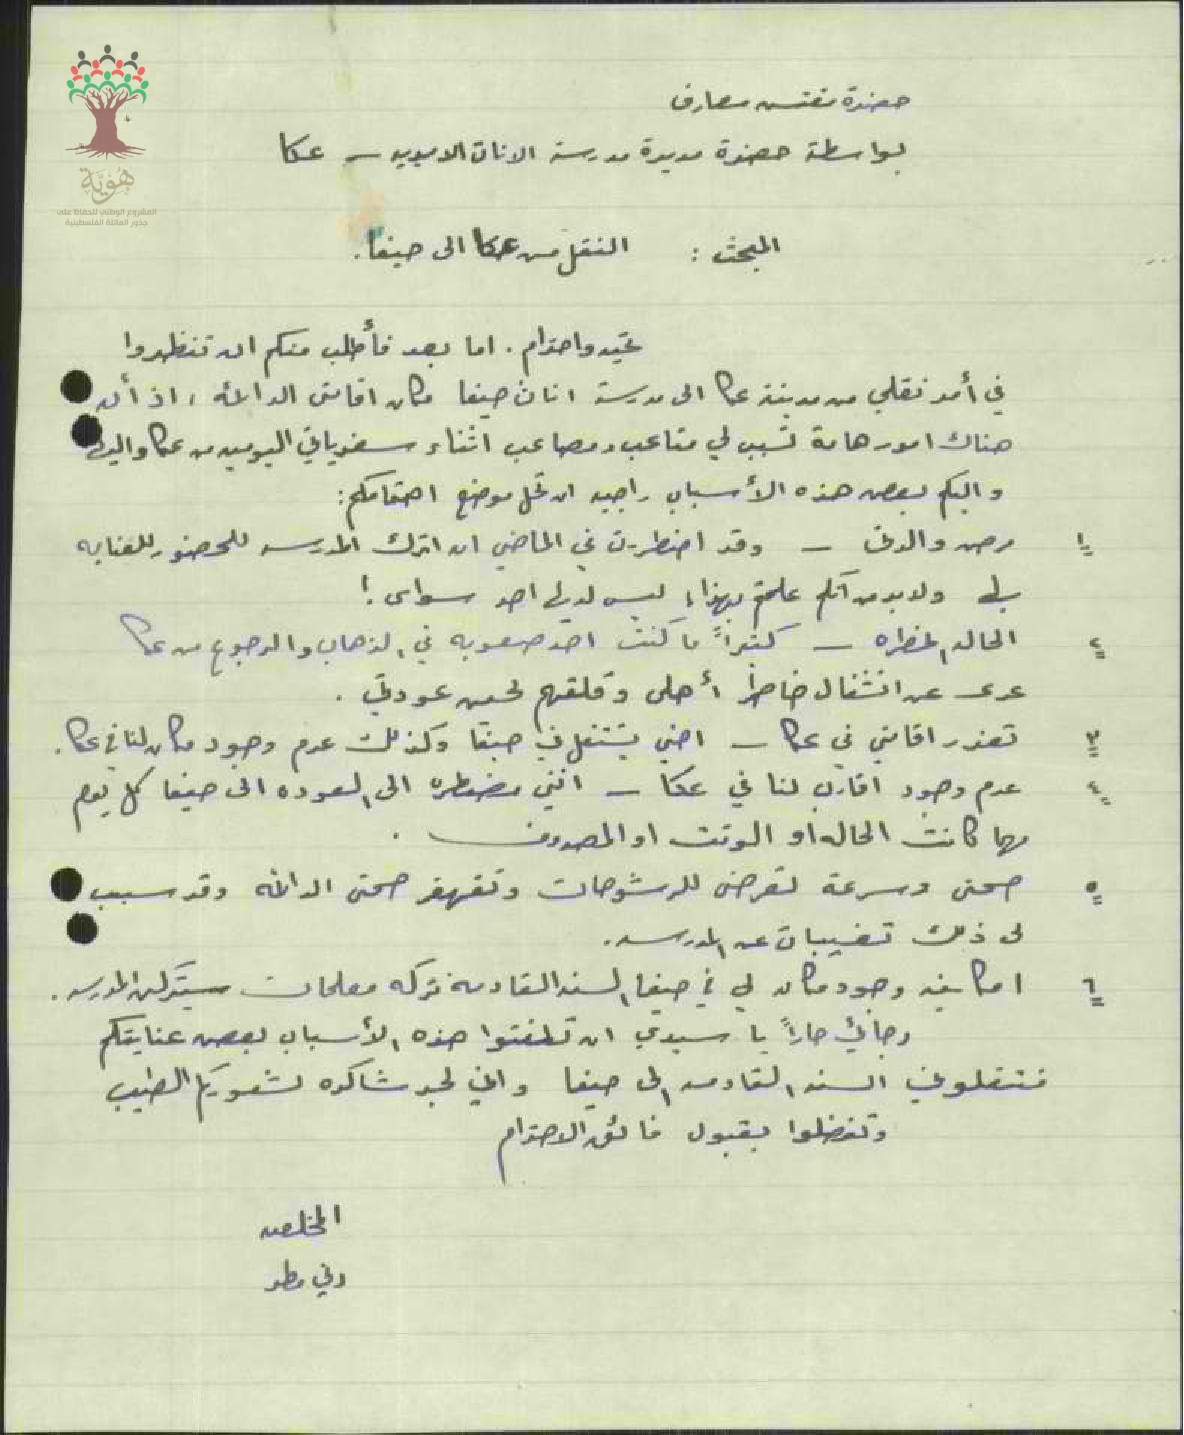 هوية
المشروع الوطني للحفاظ على
جذور العائلة الفلسطينية
حضرة مفتش معارف
بواسطة حضرة مديرة مدرسة الاناث الاميريه – عكا
المبحث : النقل من عكا الى حيفا.
تحيه واحترام . اما بعد فأطلب منكم ان تنظروا
في أمر نقلي من مدينة عكا الى مدرسة اناث حيفا مكان اقامتي الدائمه ، اذ أن
هناك امور هامة تسبب لي متاعب ومصاعب اثناء سفرياتي اليوميه من عكا واليها
واليكم بعض هذه الأسباب راجيه ان تحل موضع اهتمامكم:
١ مرض والدتي – وقد اضطررت في الماضي ان اترك المدرسه للحضور للعنايه
ولا بد من انكم علمتم بهذا، ليس لديها احد سواي !
٢ الحاله الخطره – كثيراً ما كنت اجد صعوبه في الذهاب والرجوع من عكا
عدى عن انشغال خاطر أهلي وقلقهم لحين عودتي .
٣ تعذر اقامتي في عكا – اخي يشتغل في حيفا وكذلك عدم وجود مكان لنا في عكا.
٤ عدم وجود اقارب لنا في عكا – انني مضطره الى العوده الى حيفا كل يوم
مهما كانت الحاله او الوقت او المصروف .
٥ صحتي وسرعة تعرضي للرشوحات وتقهقر صحتي الدائمه وقد سبب
لي ذلك تغيبات عن المدرسه.
٦ امكانية وجود مكان لي في حيفا السنه القادمه تركه معلمات سيتركن المدرسه .
رجائي حاراً يا سيدي ان تلفتوا هذه الأسباب بعض عنايتكم
فتنقلوني السنه القادمه الى حيفا واني لجد شاكره لشعوركم الطيب
وتفضلوا بقبول فائق الاحترام
المخلصه
مطر